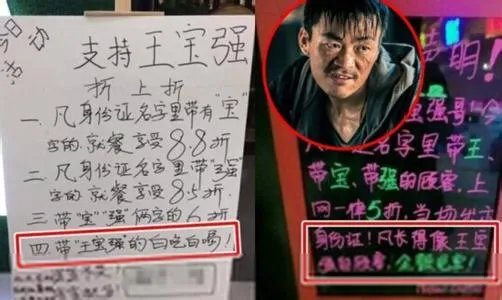 今日活动
支持王宝强
折上折
一、凡身份证名字里带有"宝"
字的就餐享受8.8折
二、凡身份证名字里带"强"
字的就餐享受8.5折
三、带"宝""强"俩字的6折
四、带"王宝强"的白吃白喝!
声明!
宝强哥!今
名字里带王、
带宝、带强的顾客,上
网一律5折,当场
身份证!凡长得像王宝
强的顾客,全部免单!